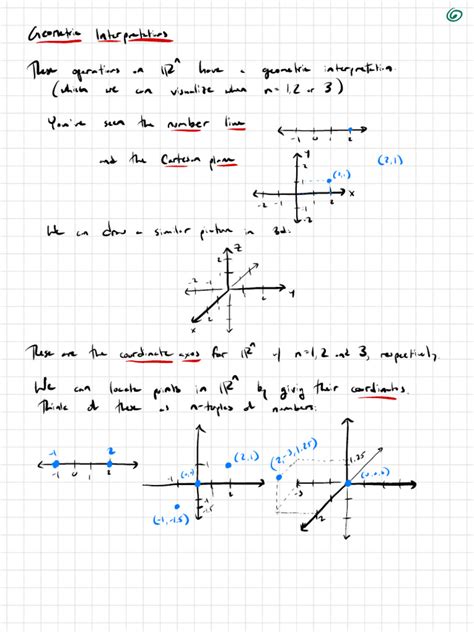 6
Geometric Interpretations
These operations on ℝⁿ have a geometric interpretation.
(which we can visualize when n=1,2 or 3)
You've seen the number line
-1 0 1 2
and the Cartesian plane
y
2
1
(2,1)
(2,1)
-2 -1 1 2 x
-1
-2
We can draw a similar picture in 3d:
z
2
1
-2 -1
1 2 y
1
2
x
These are the coordinate axes for ℝⁿ of n=1,2 and 3, respectively.
We can locate points in ℝⁿ by giving their coordinates.
Think of these as n-tuples of numbers:
-1 2
-1 0 1 2
(0,0)
1
(2,1)
-1 1 2
-1
-1.5
(-1,-1.5)
(2,-3,1.25)
1.25
(0,0,0)
-3
2